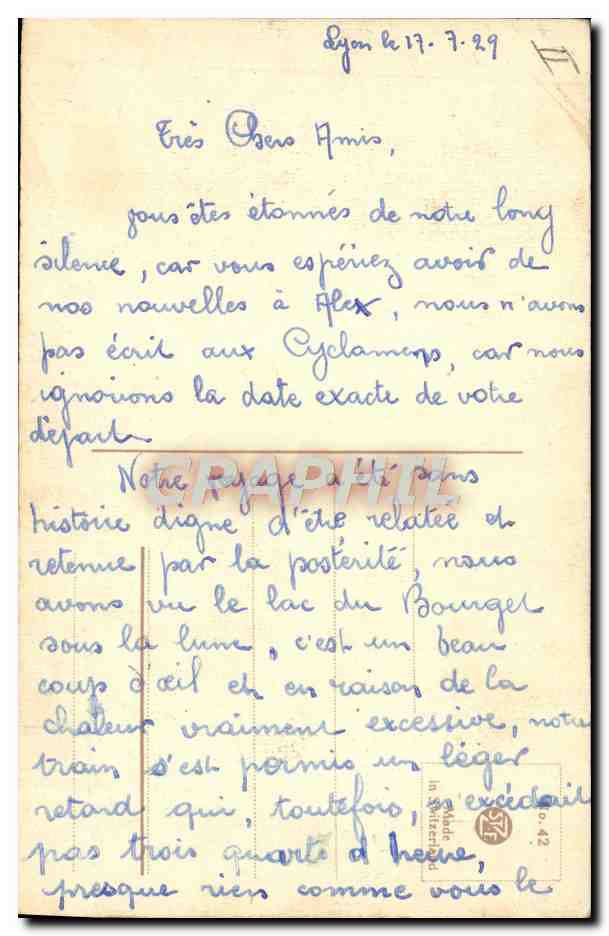 Lyon le 17.7.29
II
Très Chers Amis,
vous êtes étonnés de notre long
silence, car vous espériez avoir de
nos nouvelles à Alex, nous n'avons
pas écrit aux Cyclamens, car nous
ignorions la date exacte de votre
départ.
Notre voyage a été sans
histoire digne d'être relatée et
retenue par la postérité, nous
avons vu le lac du Bourget
sous la lune, c'est un beau
coup d'œil et en raison de la
chaleur vraiment excessive, notre
train s'est permis un léger
retard qui, toutefois, n'excédait
pas trois quarts d'heure,
presque rien comme vous le
CPAPHIL
No. 42
Made
in Switzerland